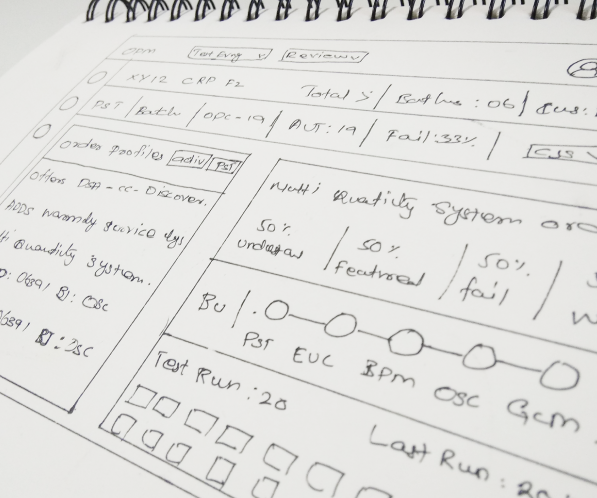 OPM Test Envg v Review v
XY12 CRP F2 Total > / Batches : 06 / Cus:
PST / Batch / OPC-19 / AUT : 19 / Fail : 33% / CSS
Order Profiles adiv PST
Offers Dsp - cc - Discover.
ADDS warrndy service sys
ti Quandity System.
D: 0689 / BJ: OSC
0689 / BJ: OSC
Multi Quatity System ord
50% / 50% / 50% /
Featured fail
BU / PST EUC BPM OSC GCM
Test Run : 20
Last Run : 20